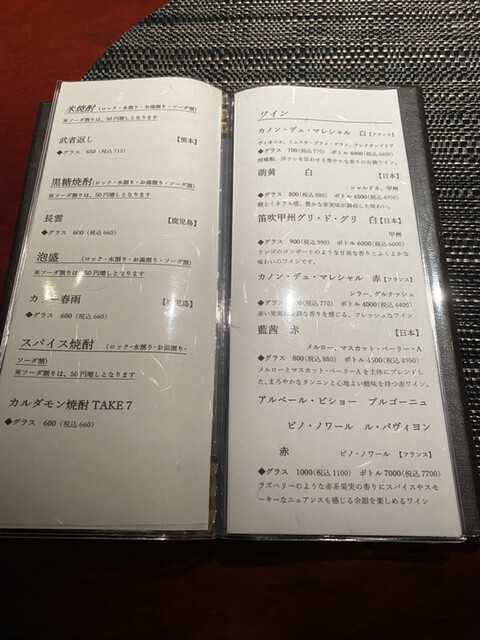 米焼酎 (ロック・水割り・お湯割り・ソーダ割)
※ソーダ割りは、50円増しとなります
武者返し 【熊本】
◆グラス 650 (税込 715)
黒糖焼酎 (ロック・水割り・お湯割り・ソーダ割)
※ソーダ割りは、50円増しとなります
長雲 【鹿児島】
◆グラス 600 (税込 660)
泡盛 (ロック・水割り・お湯割り・ソーダ割)
※ソーダ割りは、50円増しとなります
春雨 【鹿児島】
◆グラス 600 (税込 660)
スパイス焼酎 (ロック・水割り・お湯割り・ソーダ割)
※ソーダ割りは、50円増しとなります
カルダモン焼酎 TAKE 7
◆グラス 600 (税込 660)
ワイン
カノン・デュ・マレシャル 白【フランス】
ヴィオニエ、ミュスカ・プティ・グラン、アレクサンドリア
◆グラス 700(税込 770) ボトル 4000(税込 4400)
柑橘類、洋ナシを思わせる華やかな香りの有機ワイン。
萌黄 白 【日本】
シャルドネ、甲州
◆グラス 800(税込 880) ボトル 4500(税込 4950)
酸とミネラル感、豊かな果実味が調和した味わい。
笛吹甲州グリ・ド・グリ 白【日本】
甲州
◆グラス 900(税込 990) ボトル 6000(税込 6600)
リンゴのコンポートのような甘美な香りとふくよかな
味わいのワインです。
カノン・デュ・マレシャル 赤【フランス】
シラー、グルナッシュ
◆グラス (税込 770) ボトル 4000(税込 4400)
赤い果実の香りを感じる、フレッシュなワイン
藍茜 赤 【日本】
メルロー、マスカット・ベーリー・A
◆グラス 800(税込 880) ボトル 4500(税込 4950)
メルローとマスカット・ベーリーAを主体にブレンド
した、まろやかなタンニンと心地よい酸味を持つ赤ワイン。
アルベール・ビショー ブルゴーニュ
ピノ・ノワール ル・パヴィヨン
赤 ピノ・ノワール 【フランス】
◆グラス 1000(税込 1100) ボトル 7000(税込 7700)
ラズベリーのような赤系果実の香りにスパイスやスモ
ーキーなニュアンスも感じる余韻を楽しめるワイン